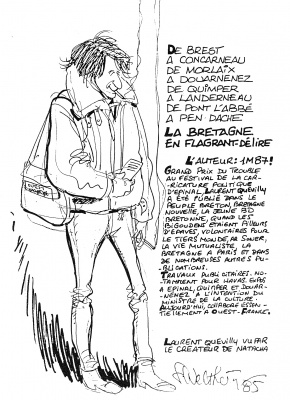 DE BREST
A CONCARNEAU
DE MORLAIX
A DOUARNENEZ
DE QUIMPER
A LANDERNEAU
DE PONT L'ABBÉ
A PEN-DACHE
LA BRETAGNE
EN FLAGRANT-DÉLIRE
L'AUTEUR: 1M87!
GRAND PRIX DU TROUBLE
AU FESTIVAL DE LA CAR-
RICATURE POLITIQUE
D'EPINAL, LAURENT QUEVILLY
A ÉTÉ PUBLIÉ DANS LE
PEUPLE BRETON, BRETAGNE
NOUVELLE, LA JEUNE BD
BRETONNE, QUAND LES
BIGOUDENS ÉTAIENT PILLEURS
D'ÉPAVES, VOLONTAIRES POUR
LE TIERS MONDE, AR SONER,
LA VIE MUTUALISTE, LA
BRETAGNE A PARIS ET DANS
DE NOMBREUSES AUTRES PU-
BLICATIONS.
TRAVAUX PUBLICITAIRES. NO-
TAMMENT POUR HAVAS. EXPOS
A EPINAL, QUIMPER ET DOUAR-
NENEZ A L'INTENTION DU
MINISTRE DE LA CULTURE.
AUJOURD'HUI, COLLABORE ESSEN-
TIELLEMENT A OUEST-FRANCE.
LAURENT QUEVILLY VU PAR
LE CREATEUR DE NATACHA
Walthéry 85